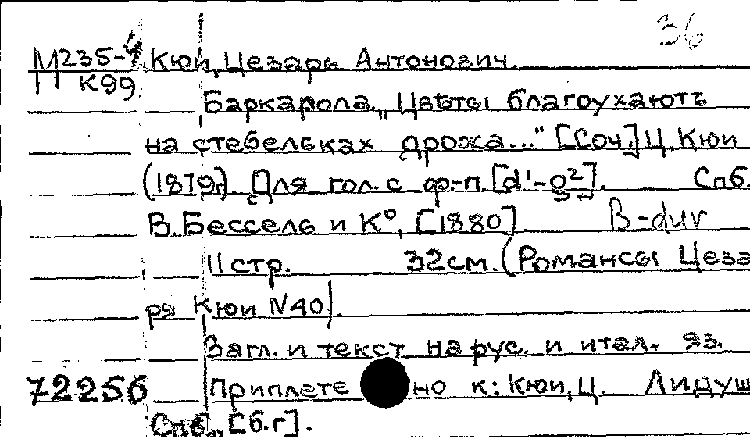 36
М235-4 Кюи, Цезарь Антонович.
К99
Баркарола „Цвѣты благоухаютъ
на стебельках дрожа..." [Соч.] Ц. Кюи
(1879г.). Для гол. с ф-п. [d'-g²]. Спб.
В. Бессель и К°, [1880] B-dur
11 стр. 32см. (Романсы Цеза
ря Кюи N40).
Загл. и текст на рус. и итал. яз.
72256 Приплете но к: Кюи, Ц. Лидуш
Спб., [б.г].